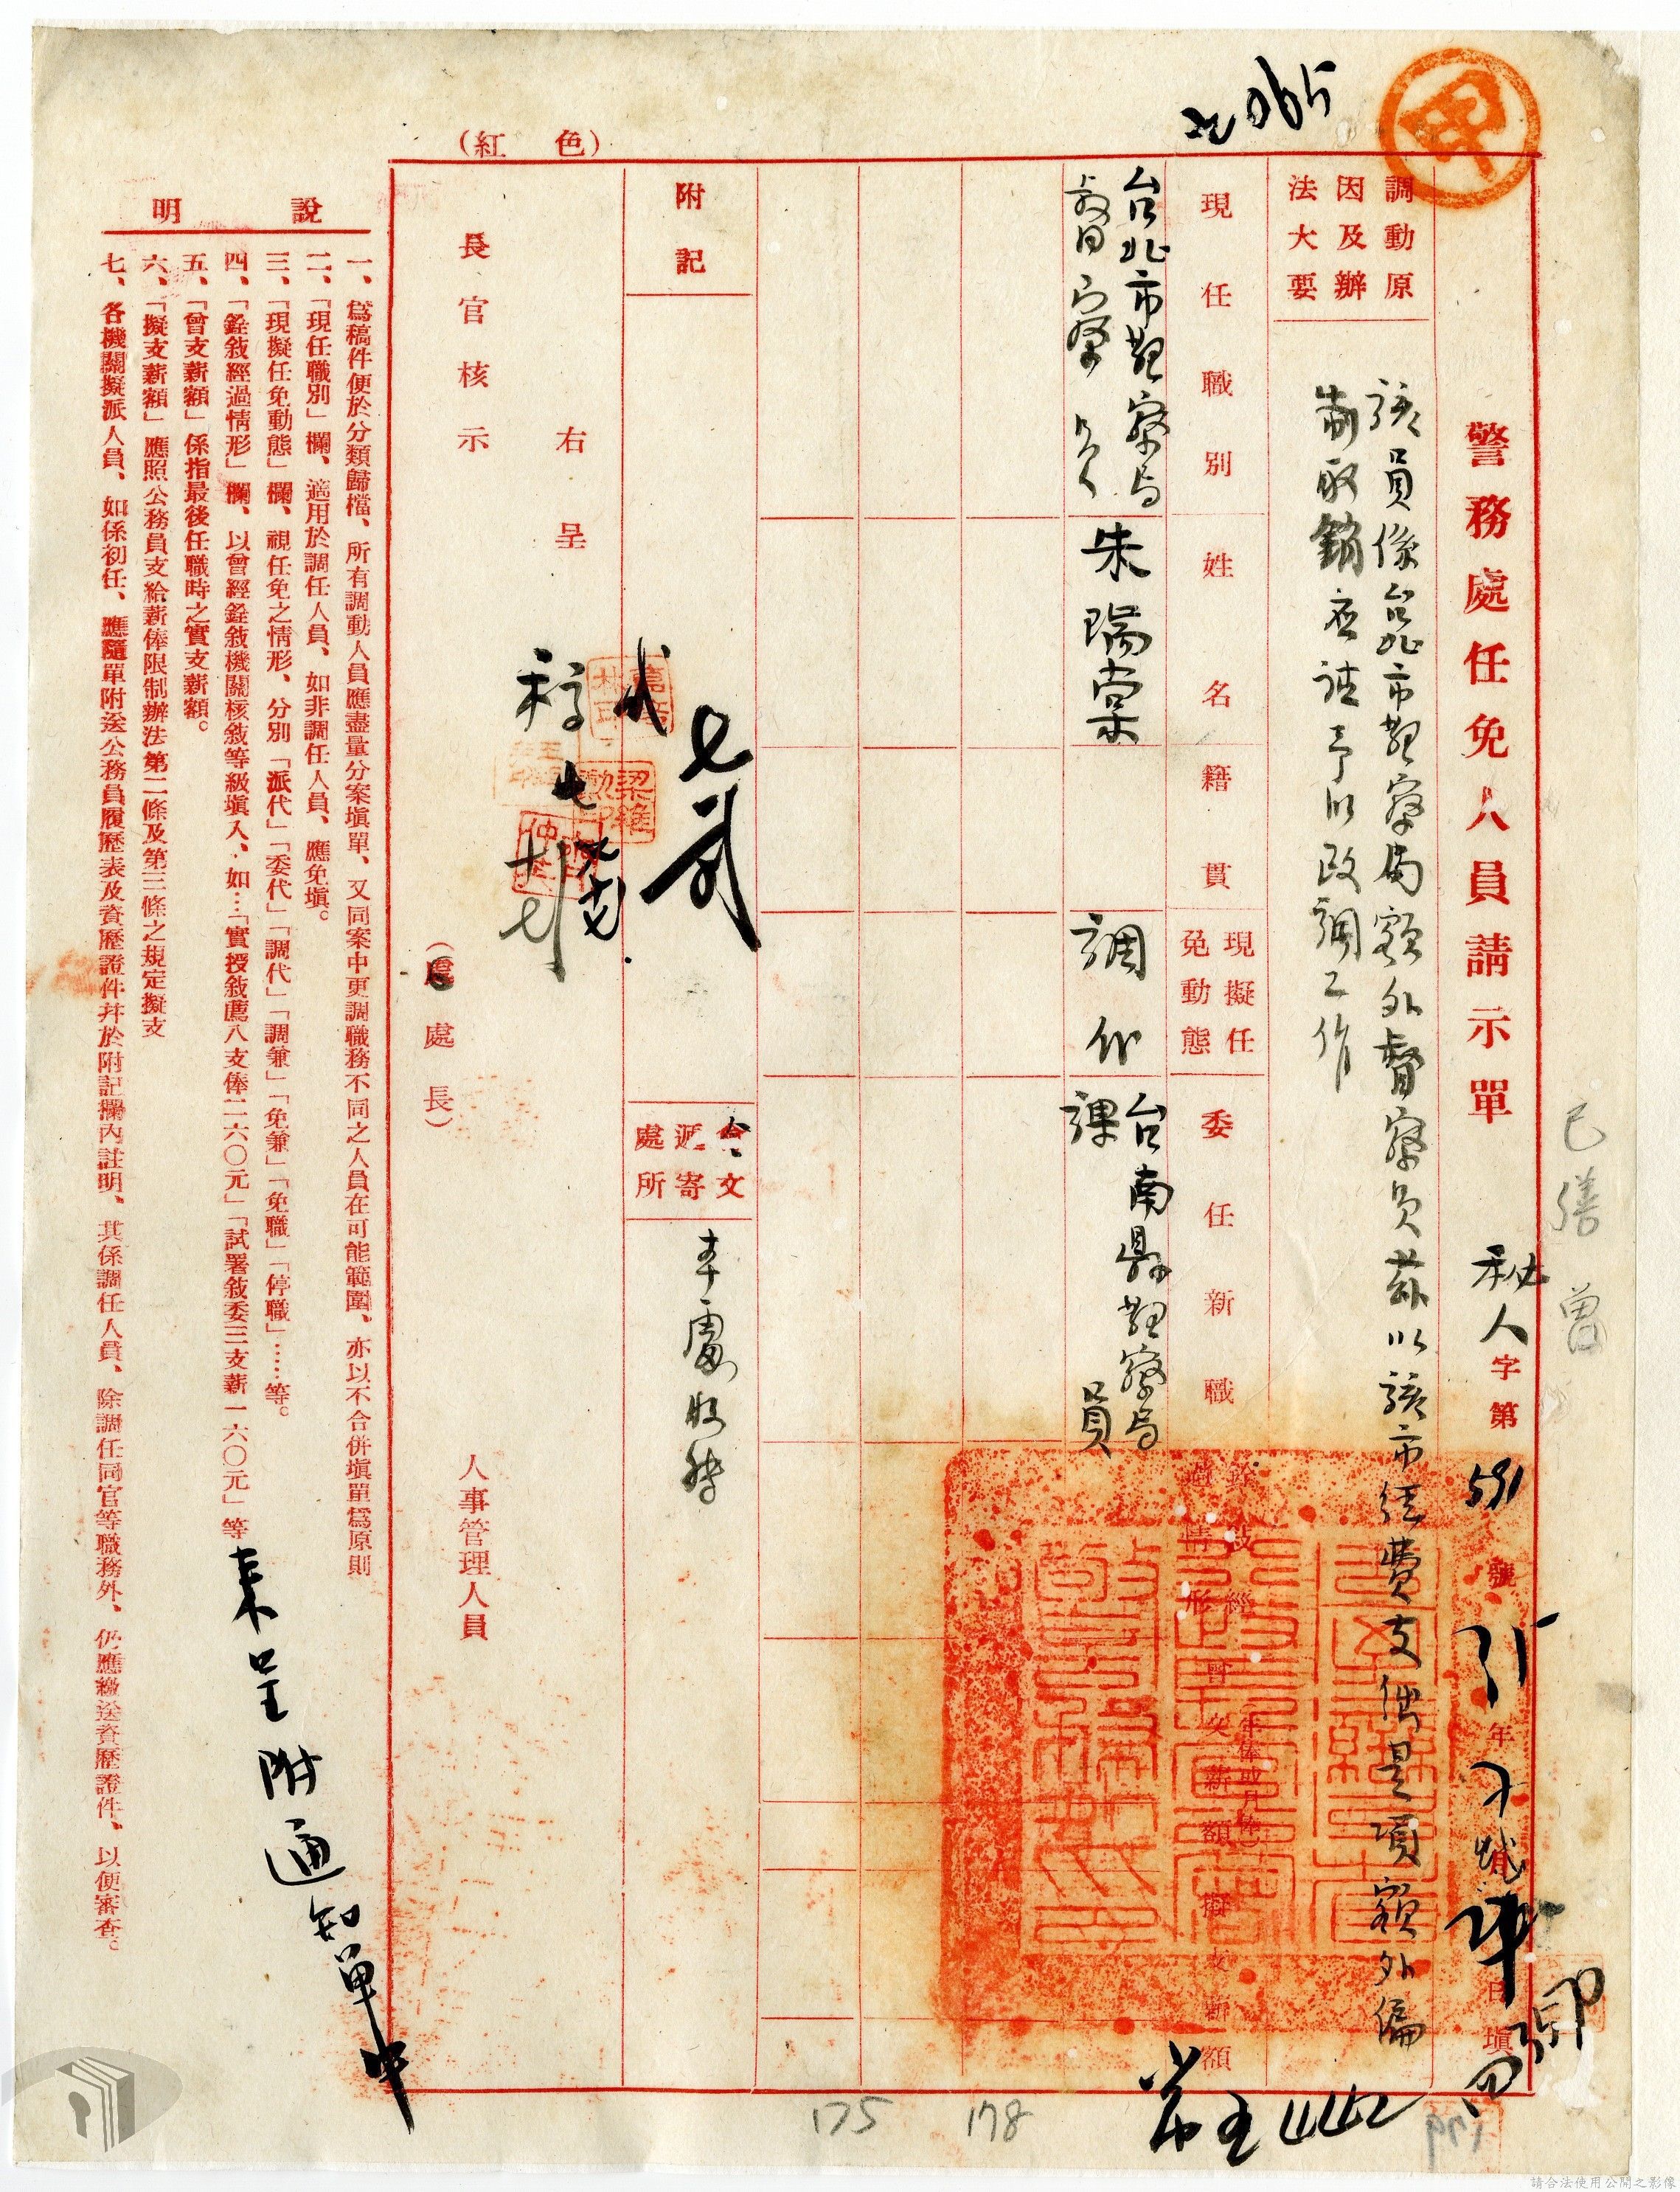 警務處任免人員請示單
秘人字第591號
年
調動原因及辦法大要
該員係台北市警察局額外督察員茲以該市經費支絀是項額外編
制取銷應請予以改調工作
現任職別
姓名
籍貫
現擬任免動態
委任新職
銓敍經過情形
曾支薪額
擬支薪額
台北市警察局
督察員
朱瑞棠
調派
台南縣警察局
課員
附記
令文遞寄處所
本處收轉
右呈
長官核示
(處處長)
人事管理人員
(紅色)
說明
一、爲稿件便於分類歸檔、所有調動人員應盡量分案塡單、又同案中更調職務不同之人員在可能範圍、亦以不合併塡單爲原則
二、「現任職別」欄、適用於調任人員、如非調任人員、應免塡。
三、「現擬任免動態」欄、視任免之情形、分別「派代」「委代」「調代」「調兼」「免兼」「免職」「停職」……等。
四、「銓敍經過情形」欄、以曾經銓敍機關核敍等級塡入、如…「實授敍薦八支俸二六〇元」「試署敍委三支薪一六〇元」等
五、「曾支薪額」係指最後任職時之實支薪額。
六、「擬支薪額」應照公務員支給薪俸限制辦法第二條及第三條之規定擬支
七、各機關擬派人員、如係初任、應隨單附送公務員履歷表及資歷證件幷於附記欄內註明、其係調任人員、除調任同官等職務外、仍應繳送資歷證件、以便審查。
來呈附通知單
175
178
179
請合法使用公開之影像